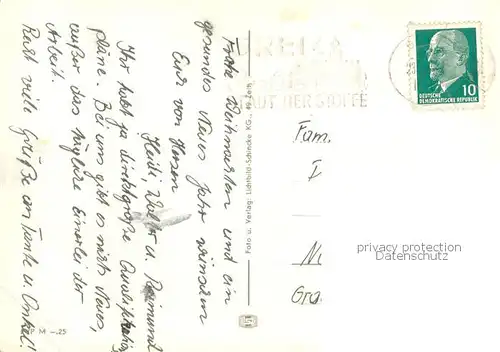 Frohe Weihnachten und ein
gesundes Neues Jahr wünschen
Euch von Herzen
Heidi, Walter u. Raimund
Ihr habt ja direkt große
Pläne. Bei uns gibt es nichts Neues,
außer das tägliche Einerlei der
Arbeit.
Recht viele Grüße an Tante u. Onkel!
Foto u. Verlag: Lichtbild-Schincke KG.,
M -.25
STADT DER STOFFE
10
DEUTSCHE
DEMOKRATISCHE REPUBLIK
Fam.
privacy protection
Datenschutz